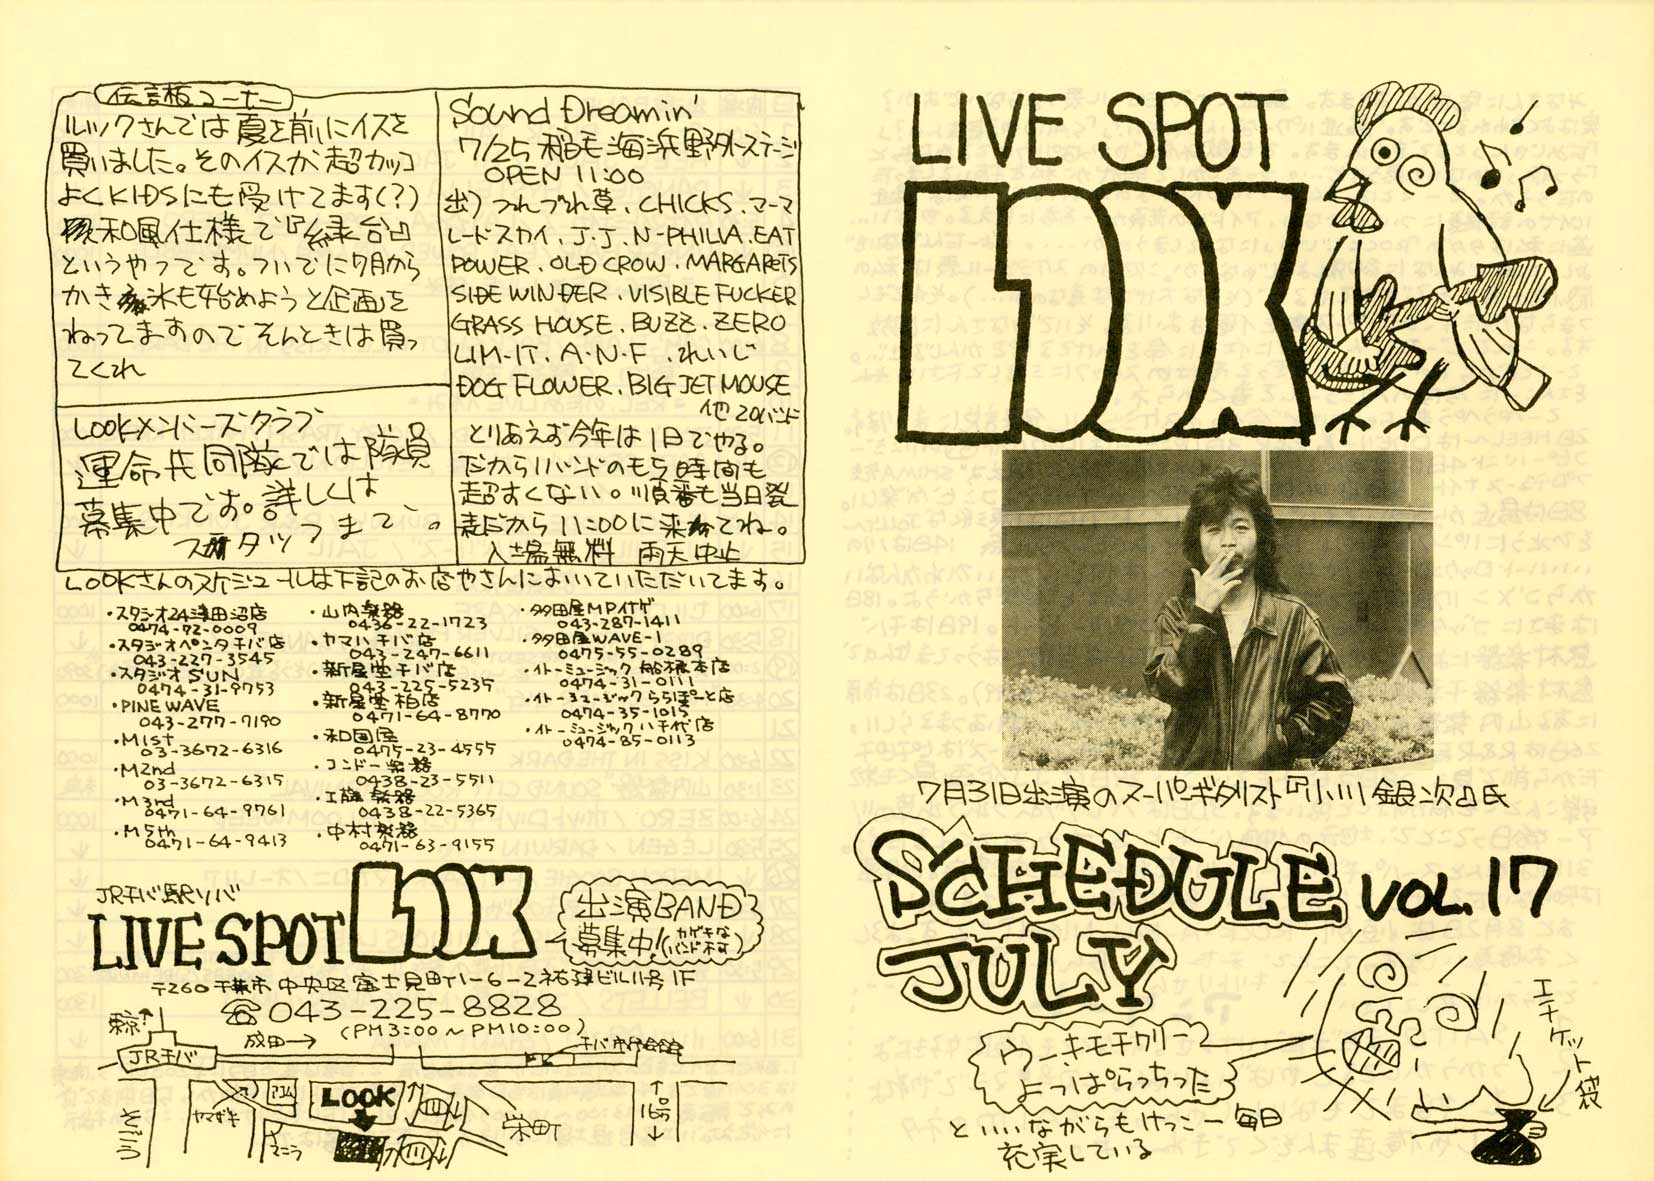 伝言板コーナー
ルックさんでは夏を前にイスを
買いました。そのイスが超カッコ
よくKIDSにも受けてます(?)
和風仕様で『縁台』
というやつです。ついでに7月から
かき氷も始めようと企画を
ねってますのでそんときは買っ
てくれ
LOOKメンバーズクラブ
運命共同隊では隊員
募集中です。詳しくは
スタッフまで。
Sound Dreamin'
7/25 稲毛海浜野外ステージ
OPEN 11:00
出)つれづれ草、CHICKS、マーマ
レードスカイ、J.J、N-PHILIA、EAT
POWER、OLD CROW、MARGARETS
SIDE WINDER、VISIBLE FUCKER
GRASS HOUSE、BUZZ、ZERO
LIM-IT、A・N・F、れいじ
DOG FLOWER、BIG JET MOUSE
他20バンド
とりあえず今年は1日でやる。
だから1バンドのもち時間も
超すくない。順番も当日発
表だから11:00に来てね。
入場無料 雨天中止
LOOKさんのスケジュールは下記のお店やさんにおいていただいてます。
・スタジオ24津田沼店
0474-72-0009
・スタジオペンタ千バ店
043-227-3545
・スタジオSUN
0474-31-9753
・PINE WAVE
043-277-7190
・M1st
03-3672-6316
・M2nd
03-3672-6315
・M3rd
0471-64-9761
・M5th
0471-64-9413
・山内楽器
0436-22-1723
・ヤマハ千バ店
043-247-6611
・新星堂千バ店
043-225-5235
・新星堂柏店
0471-64-8770
・和国屋
0475-23-4555
・コンドー楽器
0438-23-5511
・工藤楽器
0438-22-5365
・中村楽器
0471-63-9155
・多田屋MPイナゲ
043-287-1411
・多田屋WAVE-1
0475-55-0289
・イトーミュージック船橋本店
0474-31-0111
・イトーミュージックららぽーと店
0474-35-1015
・イトーミュージック八千代店
0474-85-0113
JR千バ駅ソバ
LIVE SPOT LOOK
出演BAND
募集中!(カゲキな
バンド不可)
〒260 千葉市中央区富士見町1-6-2祐譲ビル11号1F
☎043-225-8828
(PM3:00~PM10:00)
東京↑
成田→
JR千バ
千バ市民会館
そごう
ヤマザキ
LOOK
栄町
LIVE SPOT
LOOK
7月31日出演のスーパーギタリスト『小川銀次』氏
SCHEDULE VOL.17
JULY
ウーキモチワリー
よっぱらっちった
といいながらもけっこー毎日
充実している
エチケット袋